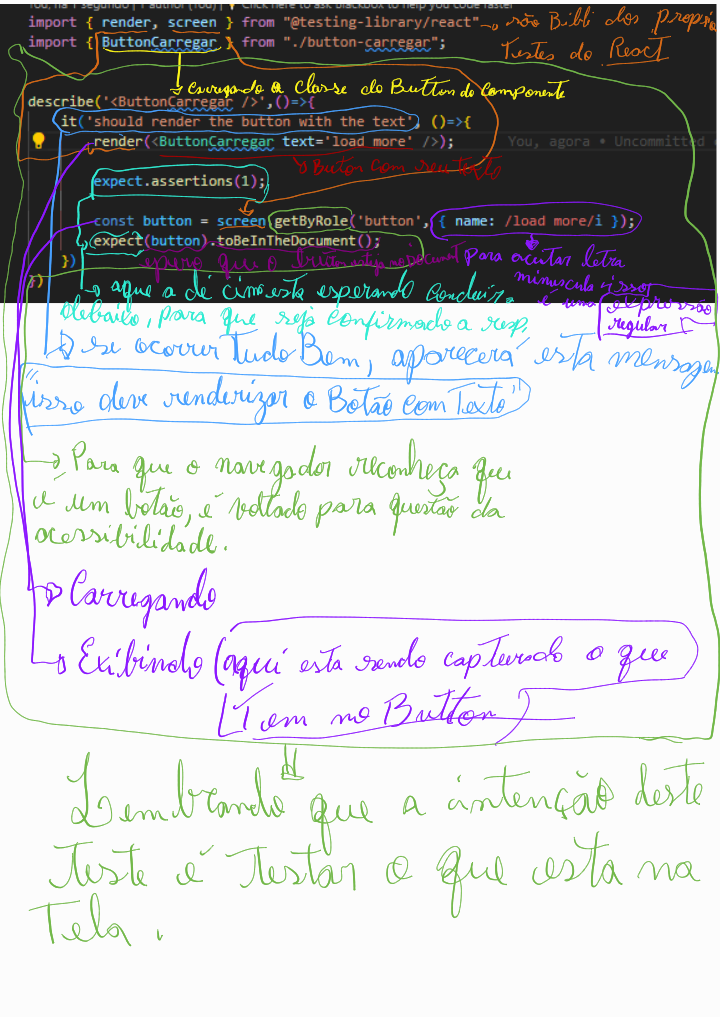 import { render, screen } from "@testing-library/react" → são Bibli dos proprio
import { ButtonCarregar } from "./button-carregar";
Testes do React
→ Carregando a classe do Button do Componente
describe('<ButtonCarregar />',()=>{
it('should render the button with the text', ()=>{
render(<ButtonCarregar text='load more' />);
You, agora • Uncommitted
→ Buton com seu texto
expect.assertions(1);
const button = screen.getByRole('button', { name: /load more/i });
expect(button).toBeInTheDocument();
})
espero que o button esteja no Document
para aceitar letra
minuscula isso
é uma expressão
regular
})
→ aque a de cima esta esperando concluir a
debaixo, para que seja confirmado a resp.
→ se ocorrer tudo Bem, aparecerá esta mensagem
"isso deve renderizar o Botão com Texto"
→ Para que o navegador reconheça que
é um botão, é voltado para questão da
acessibilidade.
→ Carregando
→ Exibindo (aqui esta sendo capturado o que
Tem no Button)
Lembrando que a intenção deste
Teste é Testar o que esta na
Tela.